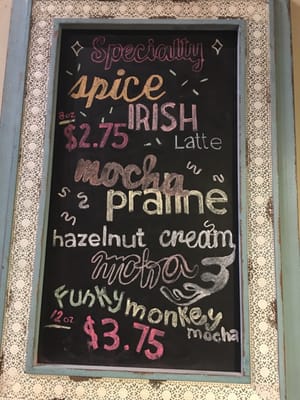 Specialty
spice
8oz IRISH
$2.75 Latte
mocha
praline
hazelnut cream
mocha
funky monkey
12oz mocha
$3.75